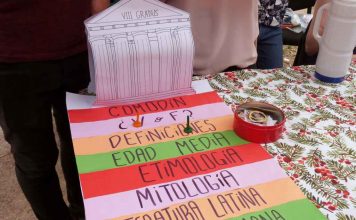 VIII GRADUS
COMODÍN
¿V & F?
DEFINICIONES
EDAD MEDIA
ETIMOLOGÍA
MITOLOGÍA
LITERATURA LATINA